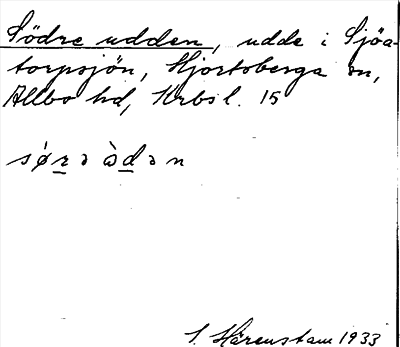 Södre udden, udde i Sjöa-
torpsjön, Hjortsberga sn,
Allbo hd, Krbs l. 15
sǿr̲ə ὰd̲ən
S. Härenstam 1933